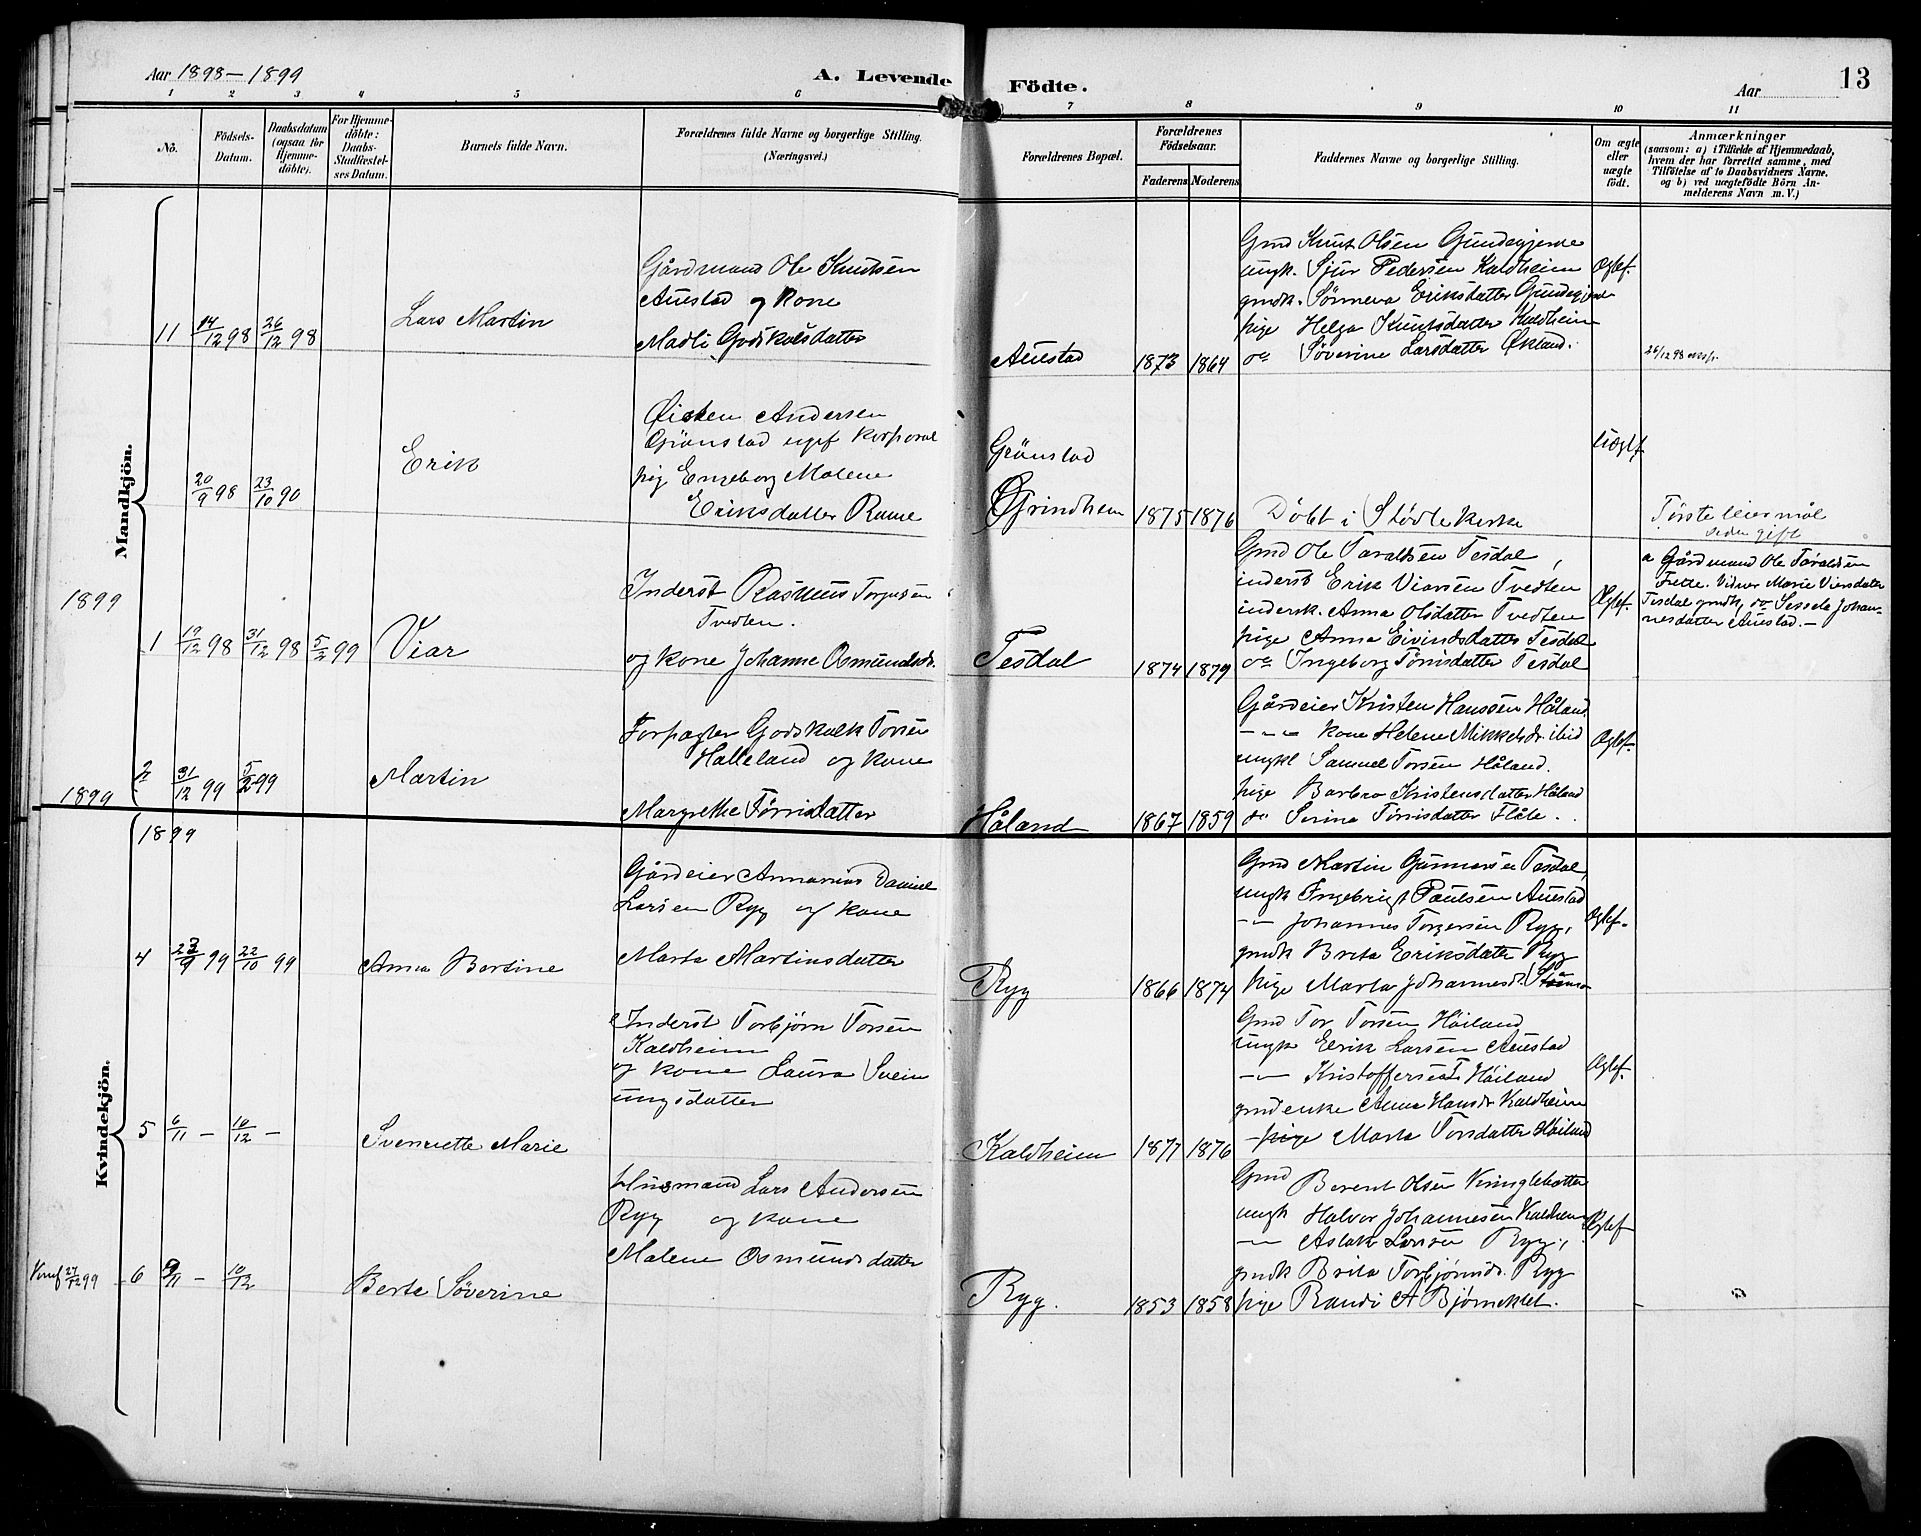 Aar 1898-1899
A. Levende Födte.
Aar
13
1 2 3 4 5 6 7 8 9 10 11
No.
Födsels-Datum.
Daabsdatum (ogsaa for Hjemme-döbte).
For Hjemme-döbte: Daabs-Stadfæstel-ses Datum.
Barnets fulde Navn.
Forældrenes fulde Navne og borgerlige Stilling. (Næringsvei.)
Forældrenes Bopæl.
Forældrenes Födselsaar.
Faderens
Moderens
Faddernes Navne og borgerlige Stilling.
Om ægte eller uægte födt.
Anmærkninger
(saasom: a) i Tilfælde af Hjemmedaab,
hvem der har forrettet samme, med
Tilföielse af to Daabsvidners Navne,
og b) ved uægtefödte Börn An-
melderens Navn m. V.)
Mandkjön.
11 14/12 98 26/12 98
Lars Martin
Gårdmand Ole Knutsen
Auestad og Kone
Madli Godskalsdatter
Auestad
1873 1864
Gmd Knut Olsen
ungk. Sjur Pedersen Kaldheim
gmdk. Sønneva Eriksdatter
pige Helga Knutsdatter Kaldheim
do Søverine Larsdatter Økland.
Ægtef.
26/12 98
20/9 98 23/10 90
Erik
Andersen
Grönstad ugf Korporal
pig Engeborg Malene
Eriksdatter Rame
Grönstad
Grindhem
1875 1876
Döbt i Stödle Kirke
Uægtf
Første leiermål
seden gift
1899
1 19/12 98 31/12 98 5/2 99
Viar
Inderst Rasmus Torgersen
Tvedten.
og Kone Johanne Osmundsdr.
Tesdal
1874 1879
Gmd Ole Taraldsen Tesdal,
inderst Erik Viarsen Tvedten
indersk. Anna Olsdatter Tvedten
pige Anna Eivindsdatter Tesdal
do Ingeborg Tørrisdatter Tesdal
Ægtef.
a Gårdmand Ole Taraldsen
Vidner Marie Viersdatter
Tesdal gmdk, do Sessela Johan-
nesdatter Auestad.-
1899
2 31/12 99 5/2 99
Martin
Forpagter Godskalk Torsen
Halleland og Kone
Margrethe Tørrisdatter
Håland
1867 1859
Gårdeier Kristen Hanssen Håland
- - - Kone Helene Mikkelsdr. ibid
ungkl Samuel Torsen Håland.
pige Barbro Kristensdatter Håland
do Serina Tørrisdatter Flåte.
Ægtef.
Kvindekjön.
1899
4 23/9 99 22/10 99
Anna Bertine
Gårdeier Annanias Daniel
Larsen Ryg og Kone
Marta Martinsdatter
Ryg
1866 1874
Gmd Martin Gunnarsen Tesdal,
ungk Ingebrigt Paulsen Auestad
- - Johannes Torgersen Ryg,
gmdk Brita Eriksdatter Ryg
pige Marta Johannesdr.
Ægtef.
5 6/11 - 10/12 -
Svenuette Marie
Inderst Torbjørn Torsen
Kaldheim
og Kone Laura Svein
ungsdatter
Kaldheim
1877 1876
Gmd Tor Torsen Høiland
ungk Eerik Larsen Auestad
- - Kristoffersen T Høiland
gmdenke Anna Hansdr Kaldheim
pige Marta Torsdatter Høiland
Ægtef.
27/12 99 6 9/11 - 10/12
Berte Søverine
Husmand Lars Andersen
Ryg og Kone
Malene Osmundsdatter
Ryg.
1853 1858
Gmd Berent Olsen
ungk Halvor Johannesen Kaldheim
- - Aslak Larsen Ryg,
gmdk Brita Torbjørnsdr. Ryg
pige Randi A Bjørneklet.
Ægtef